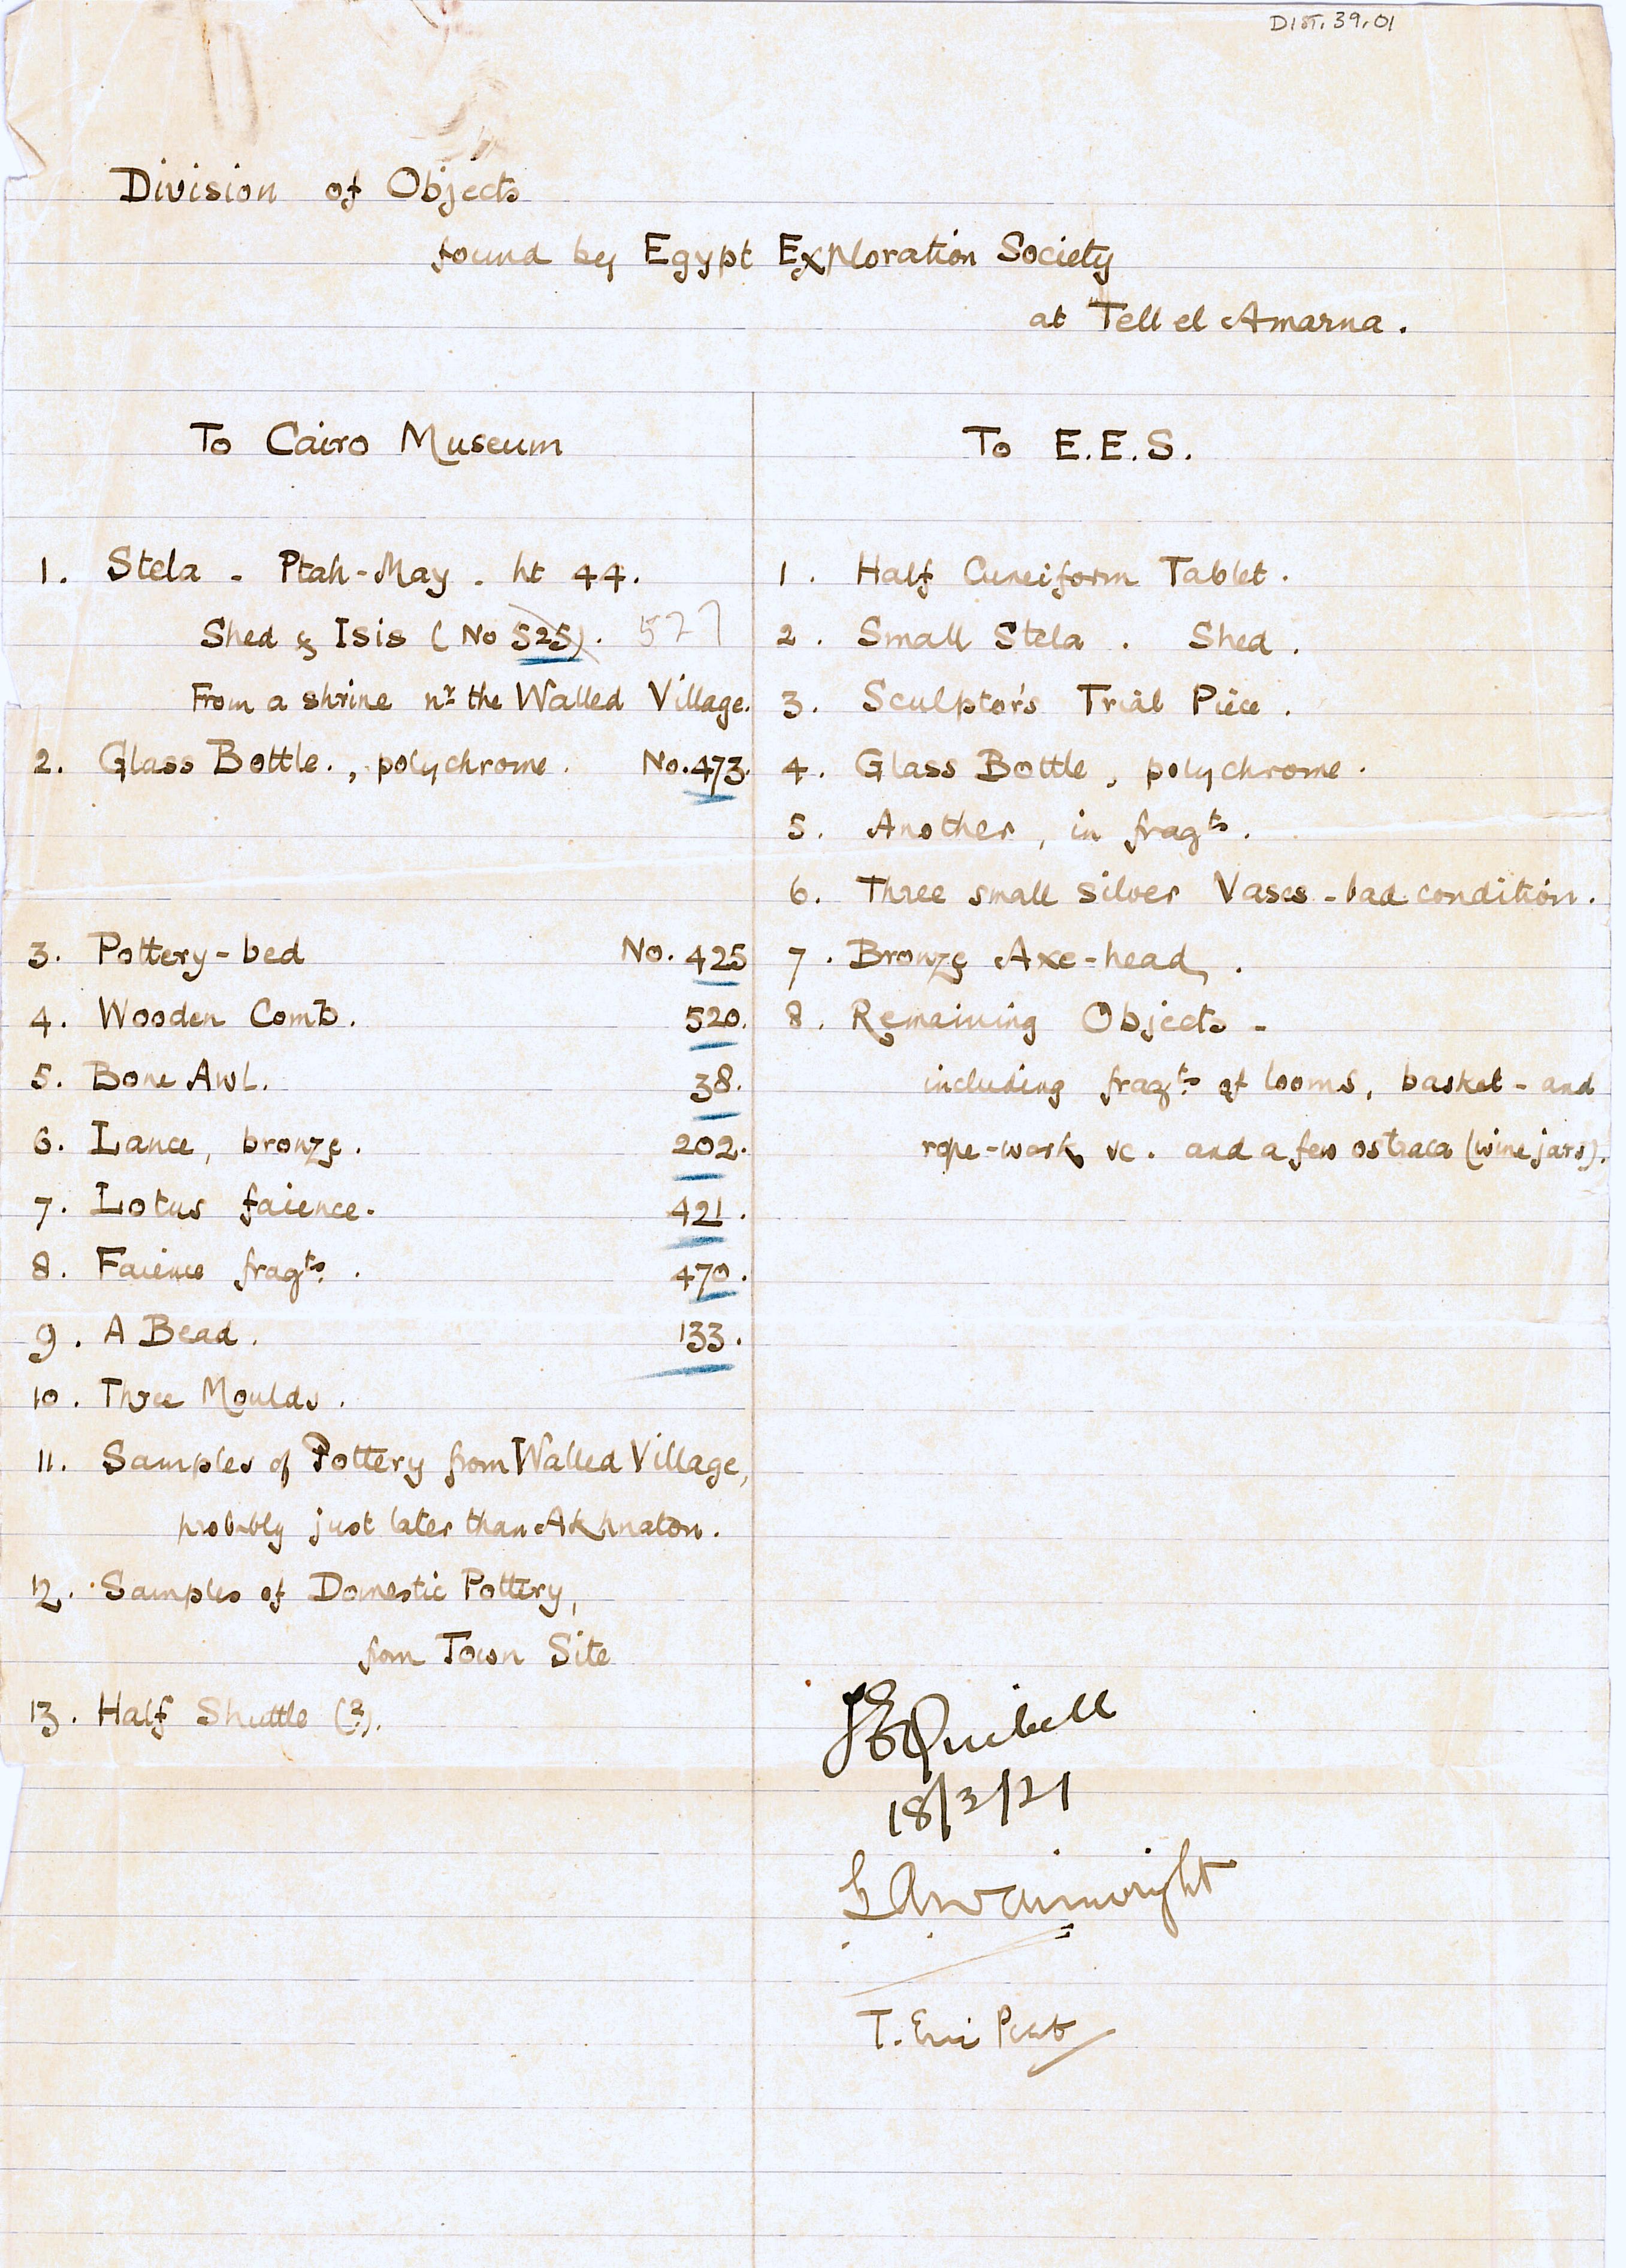 DIST. 39.01
Division of Objects
found by Egypt Exploration Society
at Tell el Amarna.
To Cairo Museum
1. Stela - Ptah-May - ht 44.
Shed & Isis (No 525). 527
From a shrine nr the Walled Village.
2. Glass Bottle., polychrome. No. 473.
3. Pottery-bed No. 425
4. Wooden Comb. 520.
5. Bone Awl. 38.
6. Lance, bronze. 202.
7. Lotus faience. 421.
8. Faience fragts. 470.
9. A Bead. 133.
10. Three Moulds.
11. Samples of Pottery from Walled Village,
probably just later than Akhnaton.
12. Samples of Domestic Pottery,
from Town Site
13. Half Shuttle (?).
To E.E.S.
1. Half Cuneiform Tablet.
2. Small Stela. Shed.
3. Sculptor's Trial Piece.
4. Glass Bottle, polychrome.
5. Another, in fragts.
6. Three small silver Vases - bad condition.
7. Bronze Axe-head.
8. Remaining Objects -
including fragts of looms, basket- and
rope-work &c. and a few ostraca (wine jars).
JEQuibell
18/3/21
G A Wainwright
T. Eric Peet